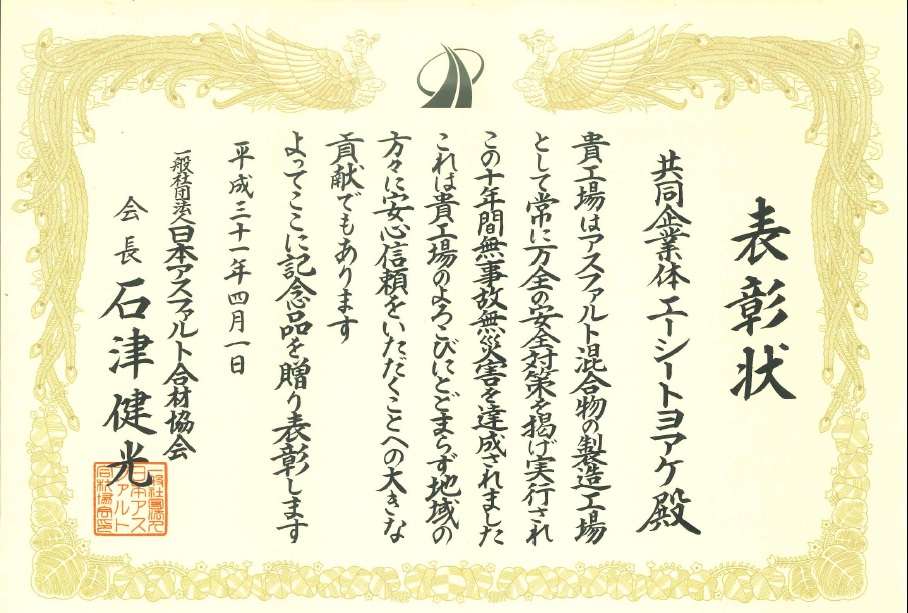 表彰状
共同企業体 エーシートヨアケ 殿
貴工場はアスファルト混合物の製造工場
として常に万全の安全対策を掲げ実行され
この十年間無事故無災害を達成されました
これは貴工場のよろこびにとどまらず地域の
方々に安心信頼をいただくことへの大きな
貢献でもあります
よってここに記念品を贈り表彰します
平成三十一年四月一日
一般社団法人日本アスファルト合材協会
会長 石津健光
一般社団法人
日本アス
ファルト
合材協会印